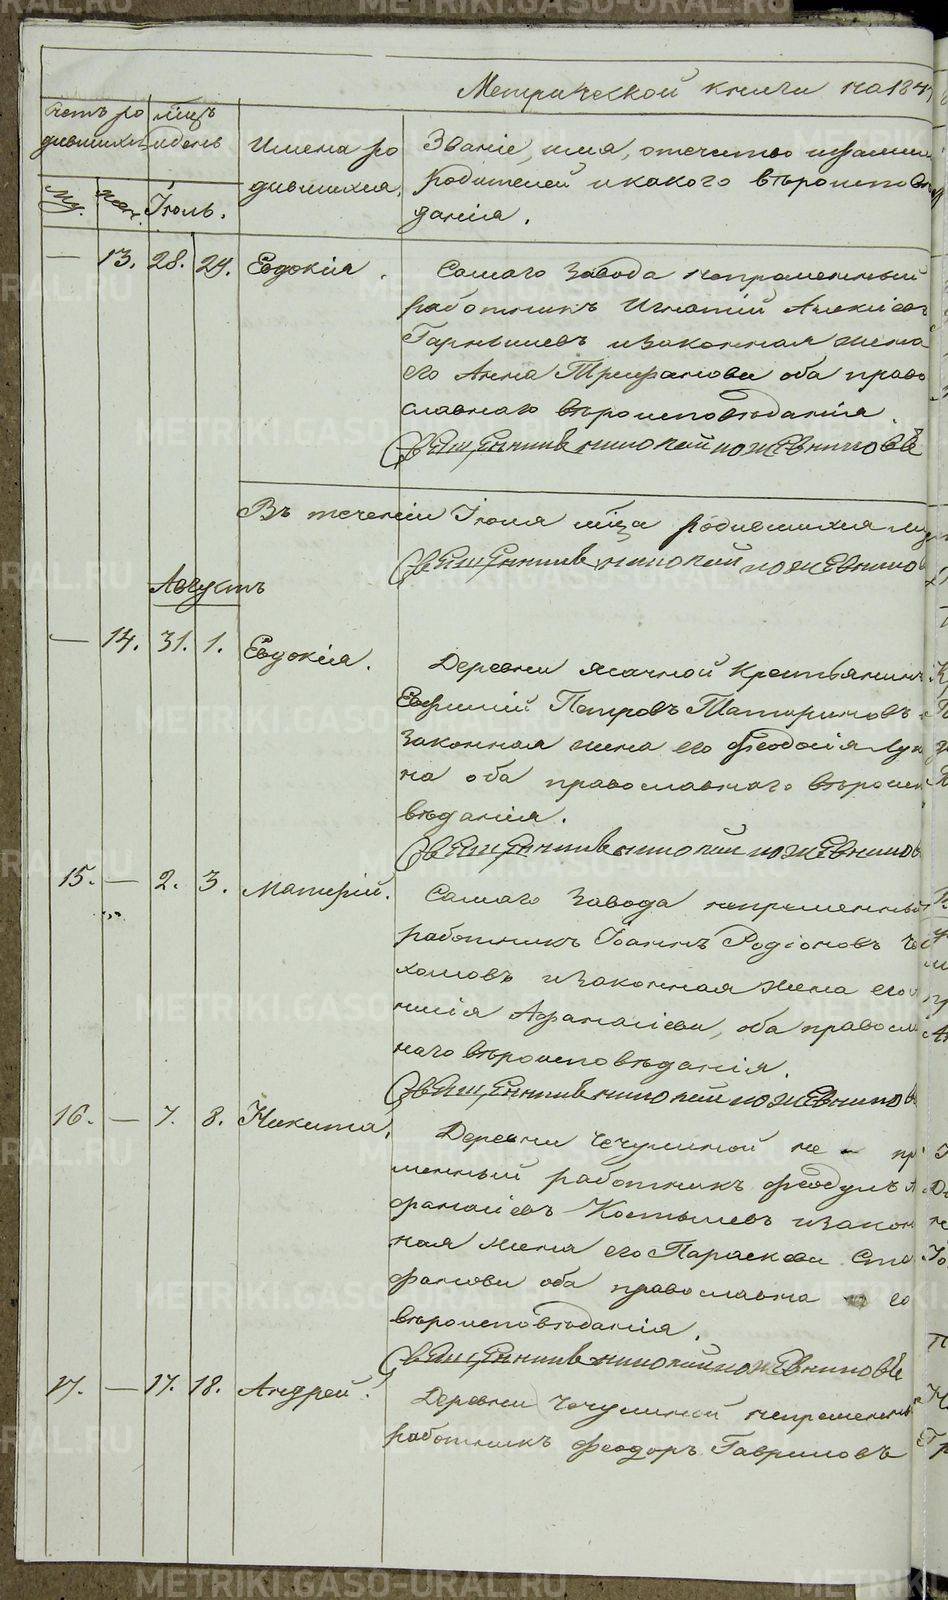 Метрической книги на 184
Счетъ ро
дившихся
мцъ
и день
Имена ро
дившихся.
Званіе, имя, отчество и фамилія
родителей и какого вѣроиспове
данія.
Му. Жен. Іюль.
— 13. 28. 29. Евдокія.
Самаго Завода непременный
работникъ Игнатій Алексіевъ
и законная жена
его Анна Трифанова оба право
славнаго вѣроисповѣданія
Священникъ Николай Кожевниковъ
Въ теченіи Іюля мца родившихся му
Священникъ Николай Кожевников
Августъ
— 14. 31. 1. Евдокія.
Деревни Ясачной крестьянинъ
Евфимій Петровъ Татариновъ
законная жена его Феодосія Лук
на оба православнаго вѣроиспо
вѣданія.
Священникъ Николай Кожевников
15. — 2. 3. Матфій.
Самаго Завода непременный
работникъ Іоаннъ Родіоновъ Че
хомовъ и законная жена его
нисія Афанасіева, оба правосла
наго вѣроисповѣданія.
Священникъ Николай Кожевников
16. — 7. 8. Никита.
Деревни Чечулиной не - пр
менный работникъ Феодулъ А
фанасіевъ Костылевъ и закон
ная жена его Параскева Сте
фанова оба православна го
вѣроисповѣданія.
Священникъ Николай Кожевниковъ
17. — 17. 18. Андрей.
Деревни Чечулиной непременный
работникъ Феодоръ Гавриловъ
METRIKI.GASO-URAL.RU